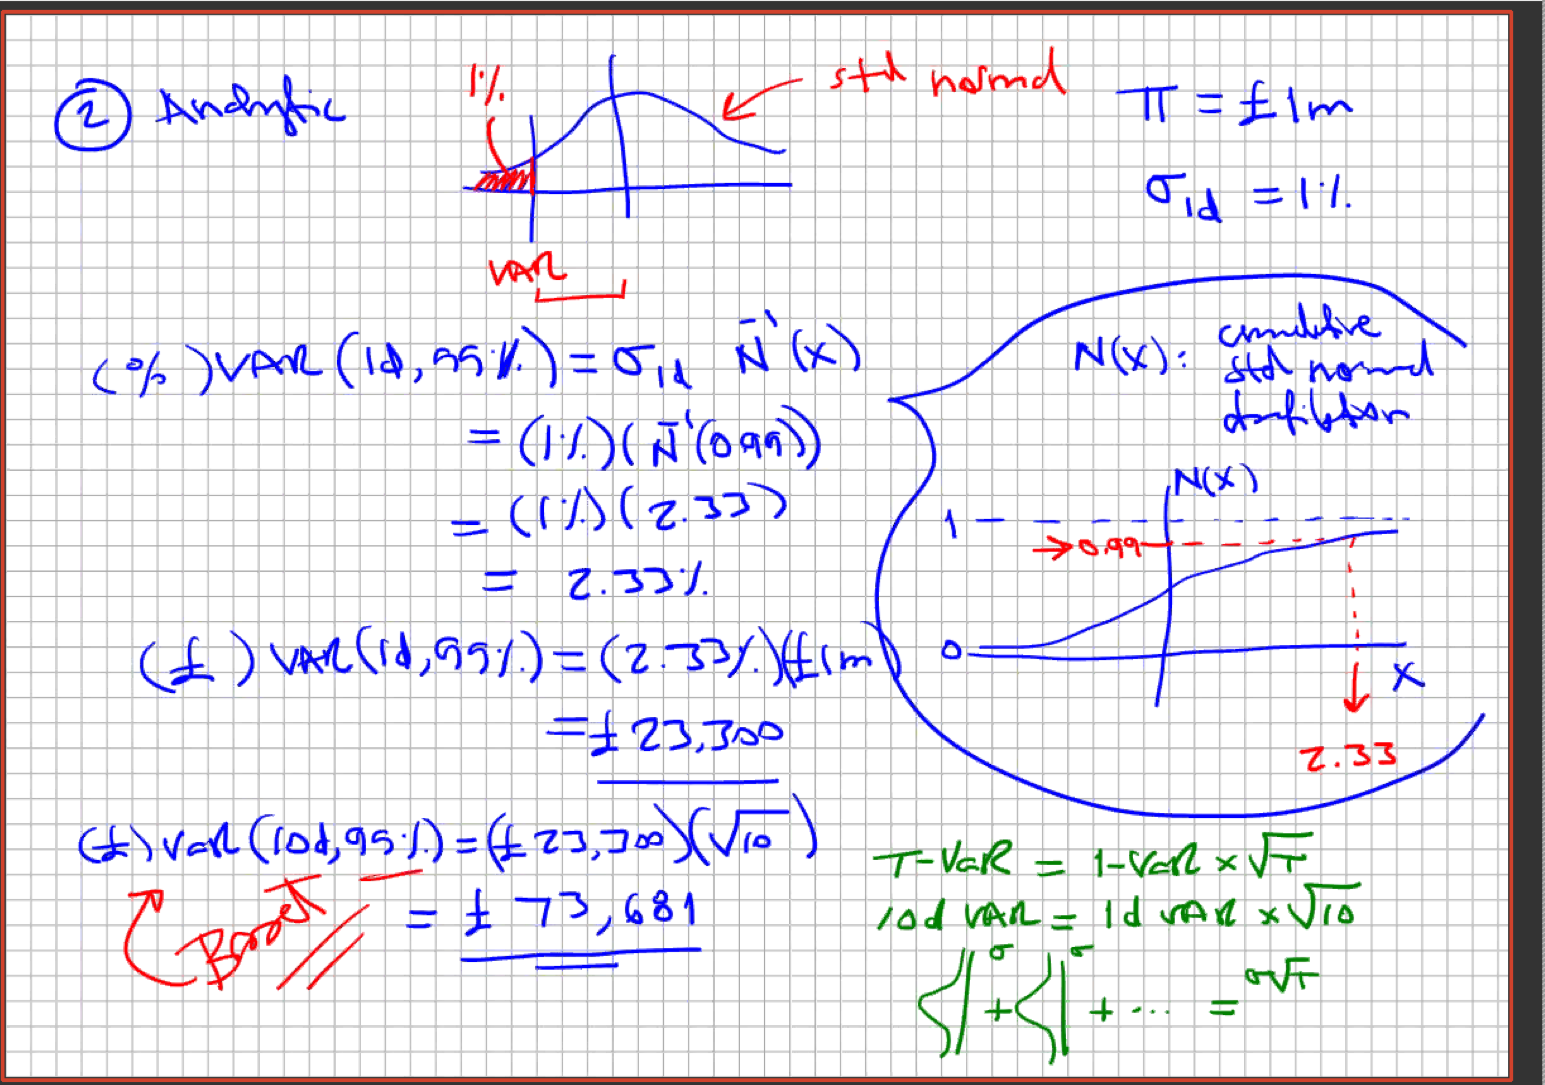 ② Analytic
1%
std normal
π = £1m
σ1d = 1%
VAR
(%) VAR (1d, 99%) = σ1d N⁻¹(x)
= (1%)(N⁻¹(0.99))
= (1%)(2.33)
= 2.33%
(£) VAR(1d, 99%) = (2.33%)(£1m)
= £23,300
(£) VaR(10d, 99%) = (£23,300)(√10)
= £73,681
N(x): cumulative
std normal
distribution
N(x)
1
→ 0.99
0
x
2.33
T-VaR = 1-VaR × √T
10d VAR = 1d VAR × √10
σ σ
+ + ... = σ√T